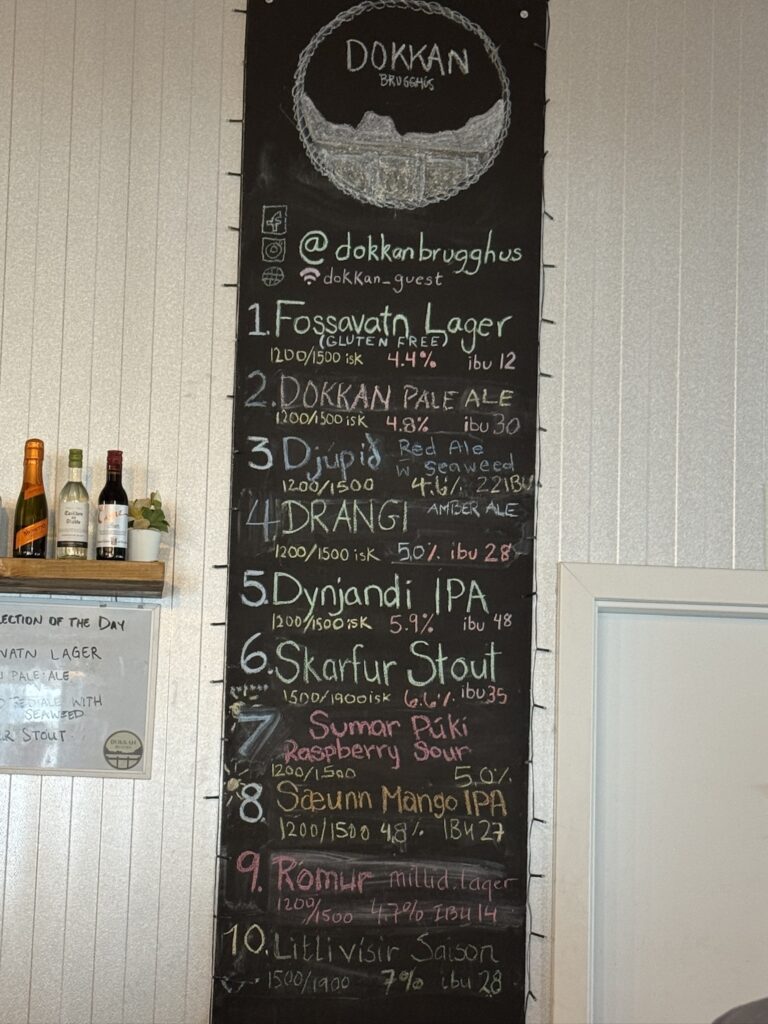 DOKKAN
BRUGGHÚS
@dokkanbrugghus
dokkan_guest
1. Fossavatn Lager
(GLUTEN FREE)
1200/1500 isk 4.4% ibu 12
2. DOKKAN PALE ALE
1200/1500 isk 4.8% ibu 30
3 Djúpið Red Ale
w seaweed
1200/1500 4.6% 22 IBU
4. DRANGI AMBER ALE
1200/1500 isk 5,0% ibu 28
5. Dynjandi IPA
1200/1500 isk 5.9% ibu 48
6. Skarfur Stout
1500/1900 isk 6.6% ibu 35
7 Sumar Púki
Raspberry Sour
1200/1500 5.0%
8 Sæunn Mango IPA
1200/1500 4,8% IBU 27
9. Rómur millid.lager
1200/1500 4.7% IBU 14
10. Litli vísir Saison
1500/1900 7% ibu 28
ECTION OF THE DAY
VATN LAGER
PALE ALE
RED ALE WITH
SEAWEED
R STOUT
DOKKAN